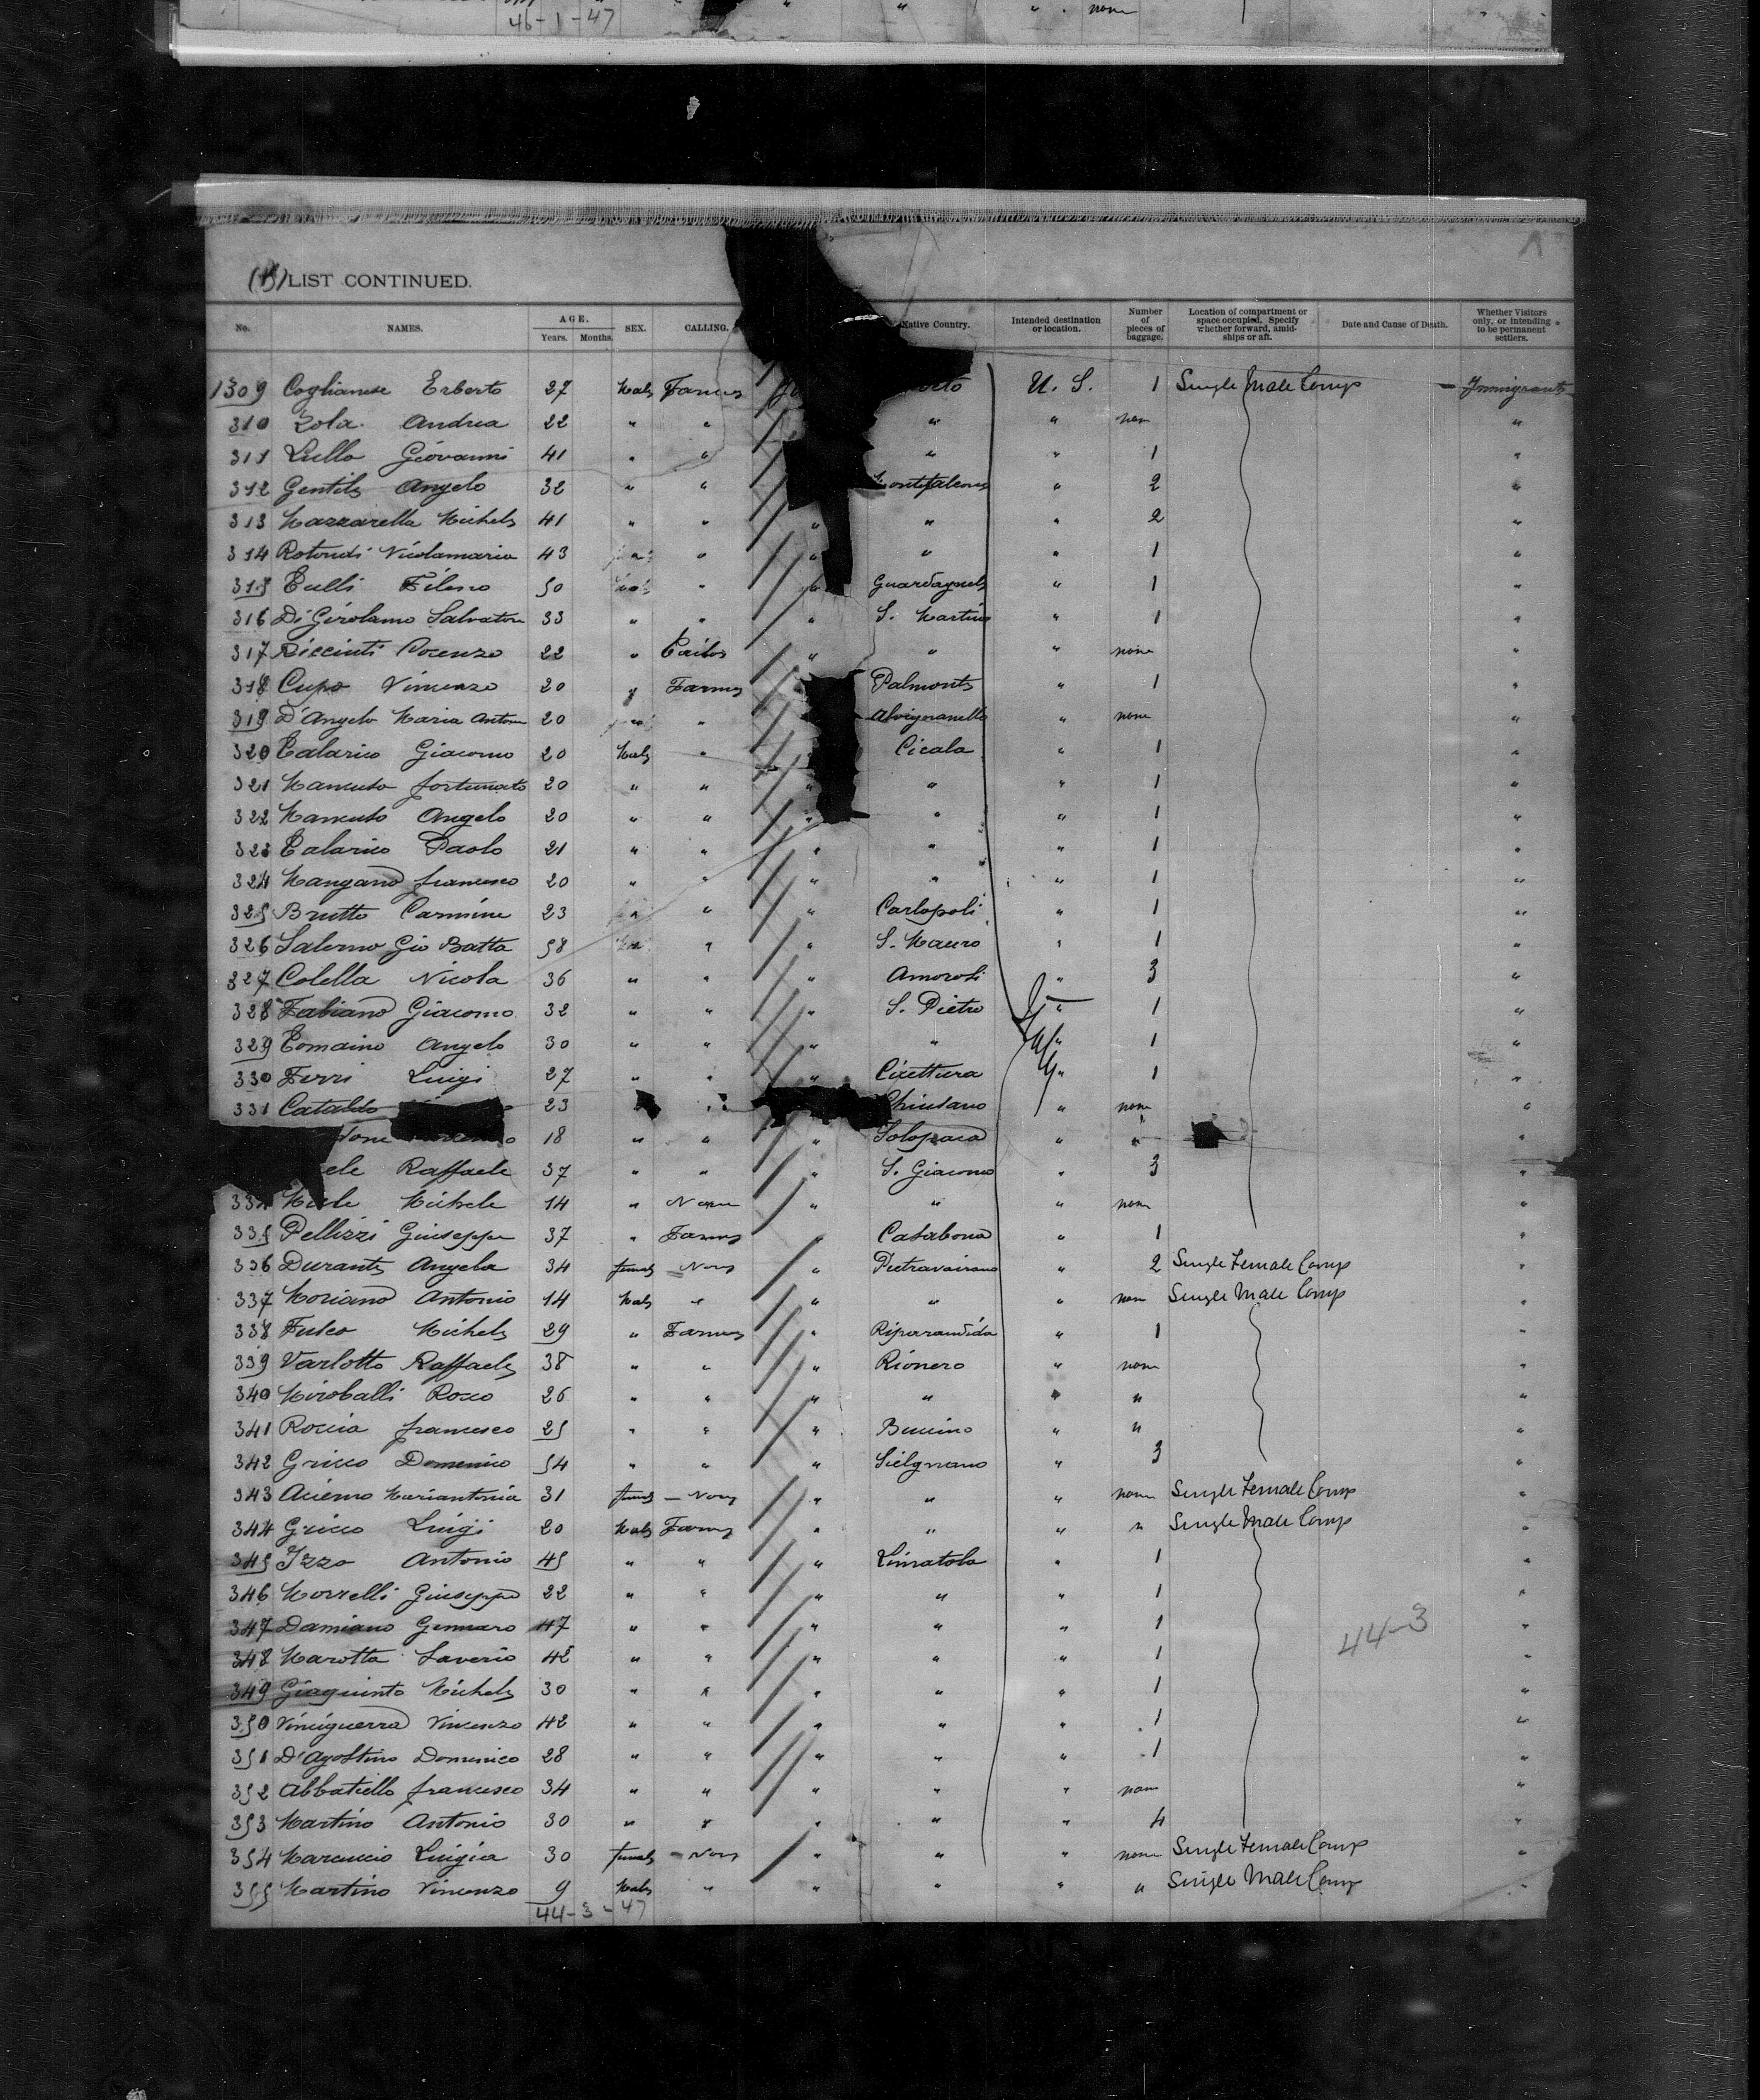 46-1-47 " " . none
LIST CONTINUED.
No. NAMES. AGE. Years. Months. SEX. CALLING. Native Country. Intended destination or location. Number of pieces of baggage. Location of compartment or space occupied. Specify whether forward, amidships or aft. Date and Cause of Death. Whether Visitors only, or intending to be permanent settlers.
1309 Coglianese Erberto 27 Male Farmer U. S. 1 Single Male Comp — Immigrants
310 Zola Andrea 22 " " " " none "
311 Lullo Giovanni 41 " " " " 1 "
312 Gentile Angelo 32 " " " 2 "
313 Mazzarella Michele 41 " " " " " 2 "
314 Rotondi Nicolamaria 43 " " " " 1 "
315 Tulli Fileno 50 Male " " " 1 "
316 Di Girolamo Salvatore 33 " " " S. Martino " 1 "
317 22 " " " " none "
318 Cupo Vincenzo 20 " Farmer Palmonte " 1 "
319 D'Angelo Maria Anton 20 " Alvignanello " none "
320 Talarico Giacomo 20 Male " Cicala " 1 "
321 Mancuso Fortunato 20 " " " " " 1 "
322 Mancuso Angelo 20 " " " " " 1 "
323 Talarico Paolo 21 " " " " " 1 "
324 Mangano Francesco 20 " " " " " 1 "
325 Brutto Carmine 23 " " Carlopoli " 1 "
326 Salerno Gio Batta 58 " " S. Mauro " 1 "
327 Colella Nicola 36 " " " Amorosi " 3 "
328 Fabiano Giacomo 32 " " " S. Pietro " 1 "
329 Tomaino Angelo 30 " " " " " 1 "
330 Ferri Luigi 27 " " " " 1 "
331 Cataldo 23 " Chiusano " none "
18 " " " Solopaca " " "
ele Raffaele 37 " " " S. Giacomo " 3 "
334 Michele 14 " None " " " none "
335 Pellizzi Giuseppe 37 " Farmer " Casabona " 1 "
336 Durante Angela 34 female None " Pietravairano " 2 Single Female Comp "
337 Moriano Antonio 14 Male " " " " none Single Male Comp "
338 Fusco Michele 29 " Farmer " Riparandida " 1 "
339 Varlotto Raffaele 38 " " " Rionero " none "
340 Miroballi Rocco 26 " " " " " " "
341 Roccia Francesco 25 " " " Buccino " " "
342 Gricco Domenico 54 " " " " 3 "
343 Acierno Mariantonia 31 female — None " " " none Single Female Comp "
344 Gricco Luigi 20 Male Farmer " " " " Single Male Comp "
345 Izzo Antonio 45 " " " Limatola " 1 "
346 Morrelli Giuseppe 22 " " " " " 1 "
347 Damiano Gennaro 47 " " " " " 1 "
44-3
348 Marotta Saverio 45 " " " " " 1 "
349 Giaquinto Michele 30 " " " " " 1 "
350 Vinciguerra Vincenzo 42 " " " " " 1 "
351 D'Agostino Domenico 28 " " " " " 1 "
352 Abbatiello Francesco 34 " " " " " none "
353 Martino Antonio 30 " " " " " 4 "
354 Marcuccio Luigia 30 female — None " " " none Single Female Comp "
355 Martino Vincenzo 9 Male " " " " " Single Male Comp "
44-3-47